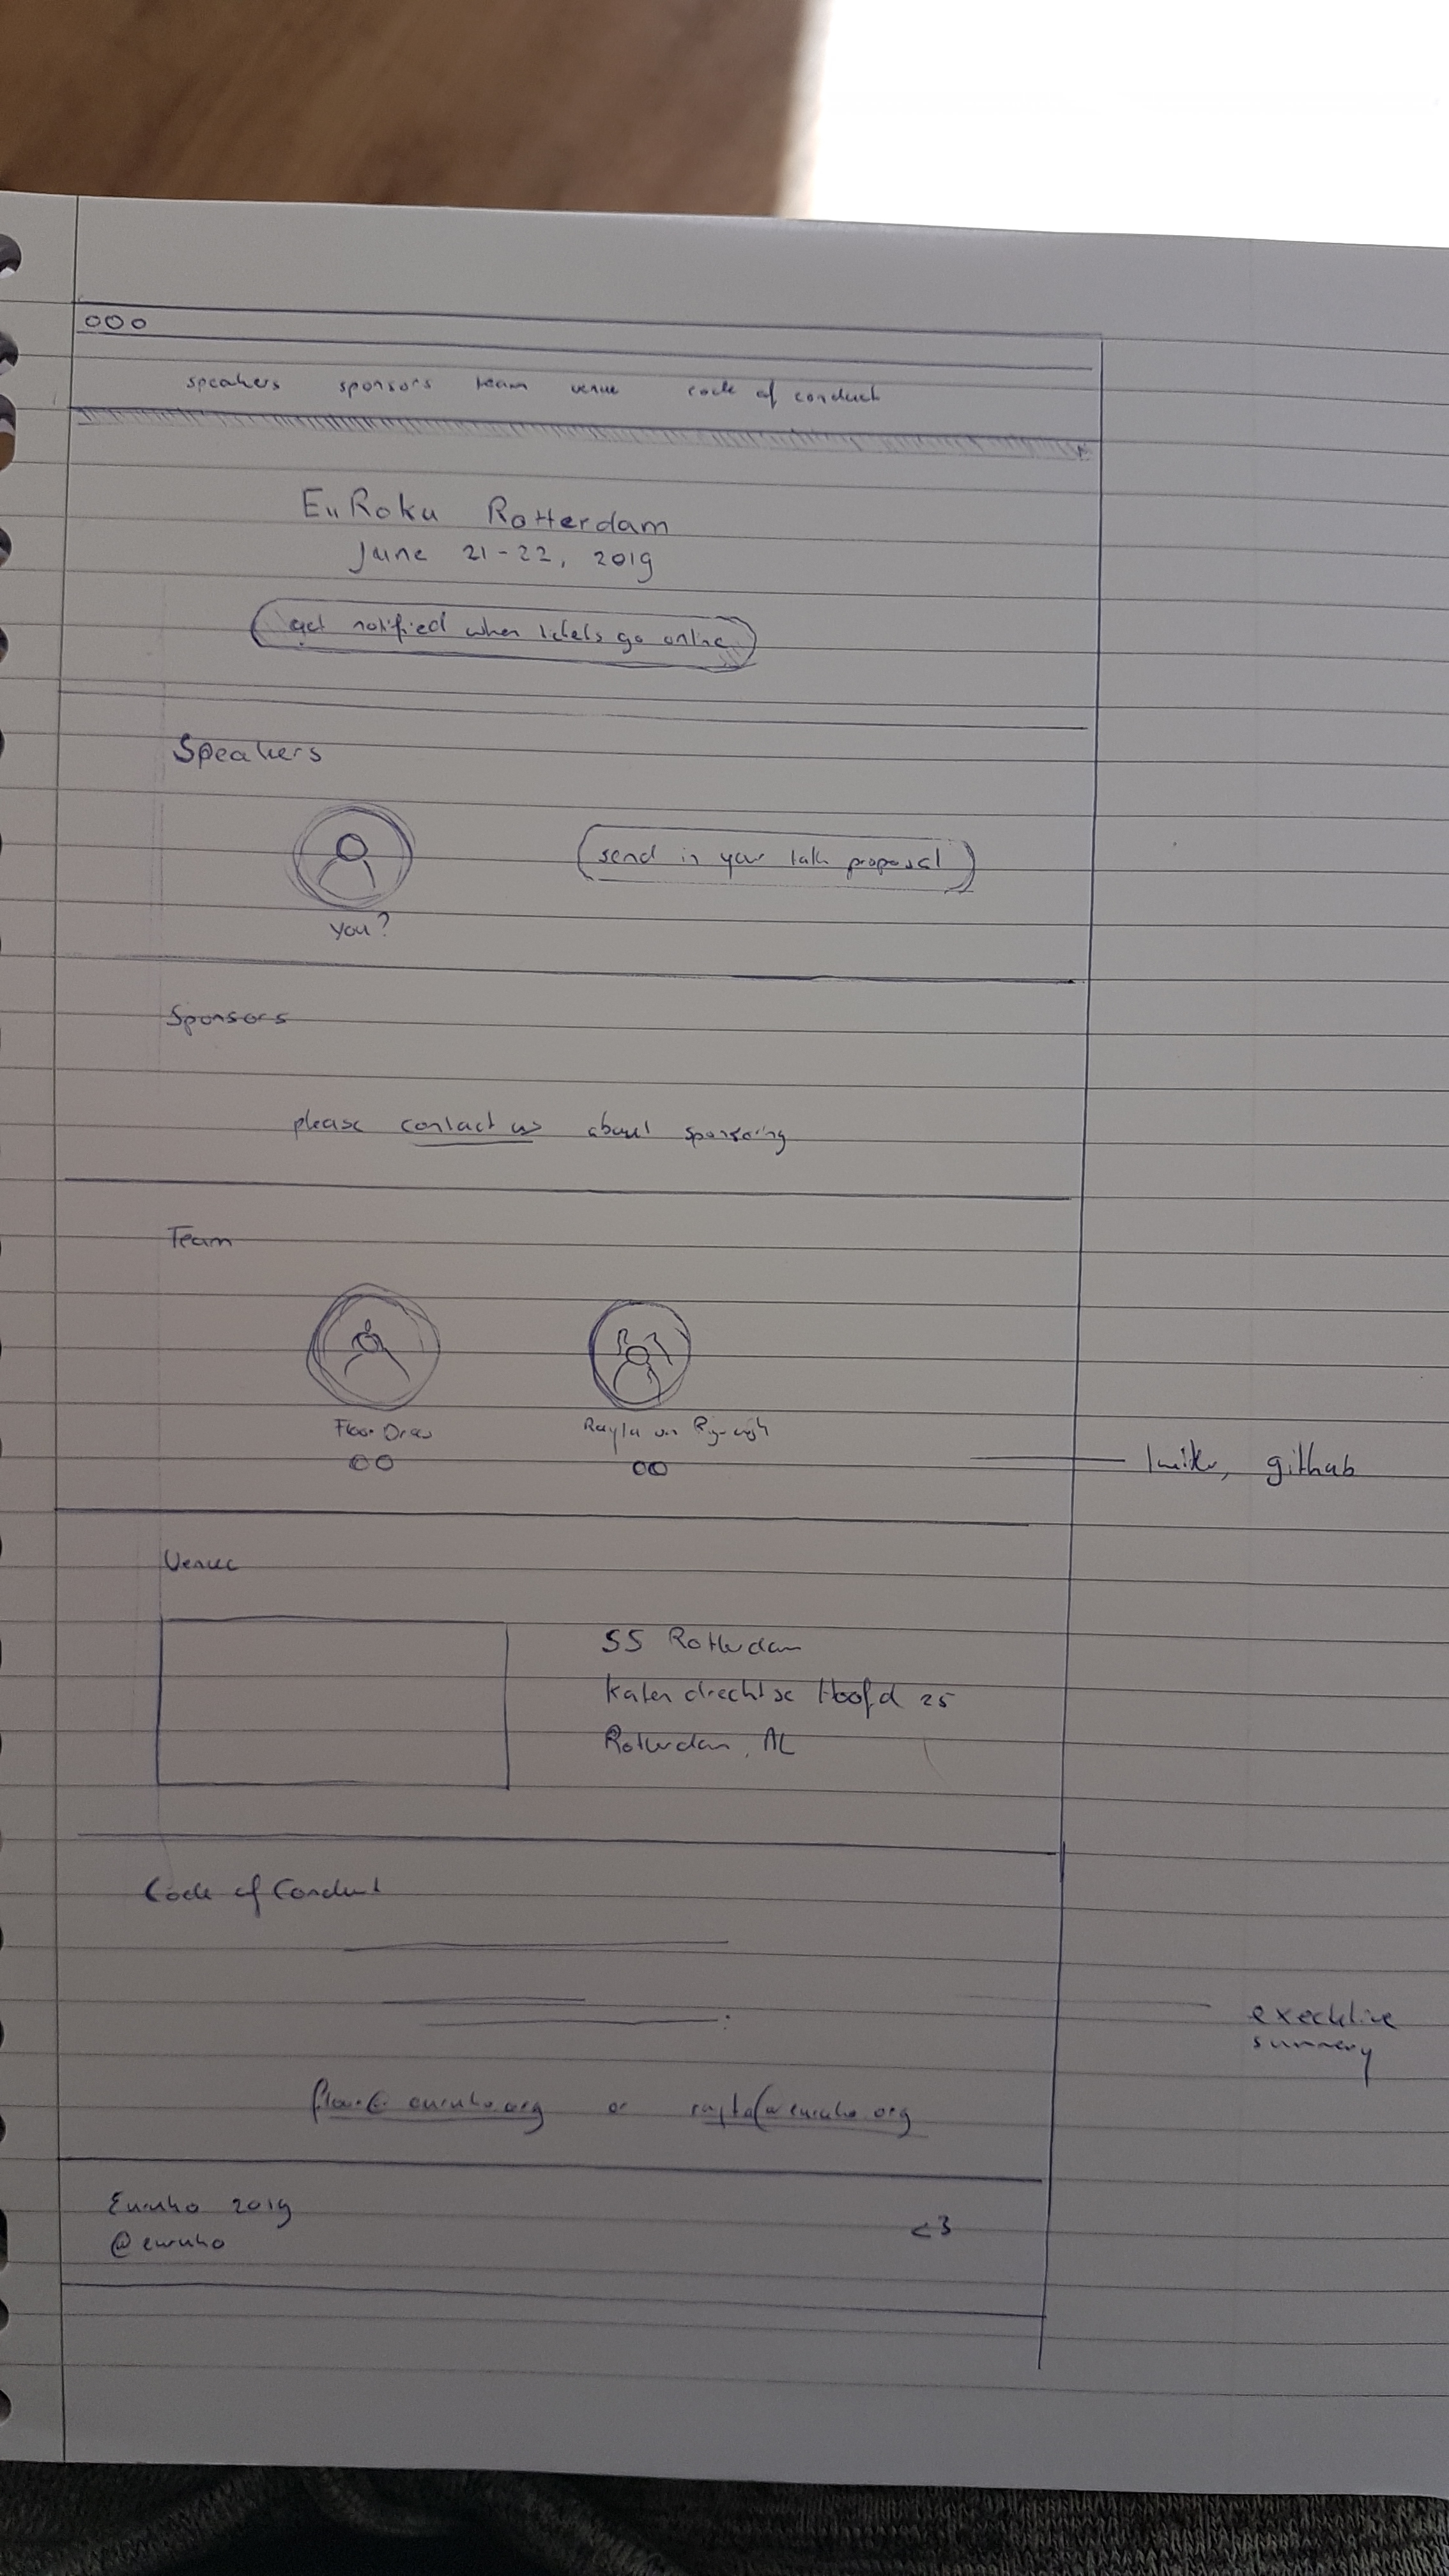 speakers sponsors team venue code of conduct
EuRoku Rotterdam
June 21-22, 2019
get notified when tickets go online
Speakers
send in your talk proposal
you?
Sponsors
please contact us about sponsoring
Team
Floor Drees
Rayta van
twitter, github
Venue
SS Rotterdam
Katendrechtse Hoofd 25
Rotterdam, NL
Code of Conduct
executive
summary
floor@euruko.org or rayta@euruko.org
Euruko 2019
@euruko
<3